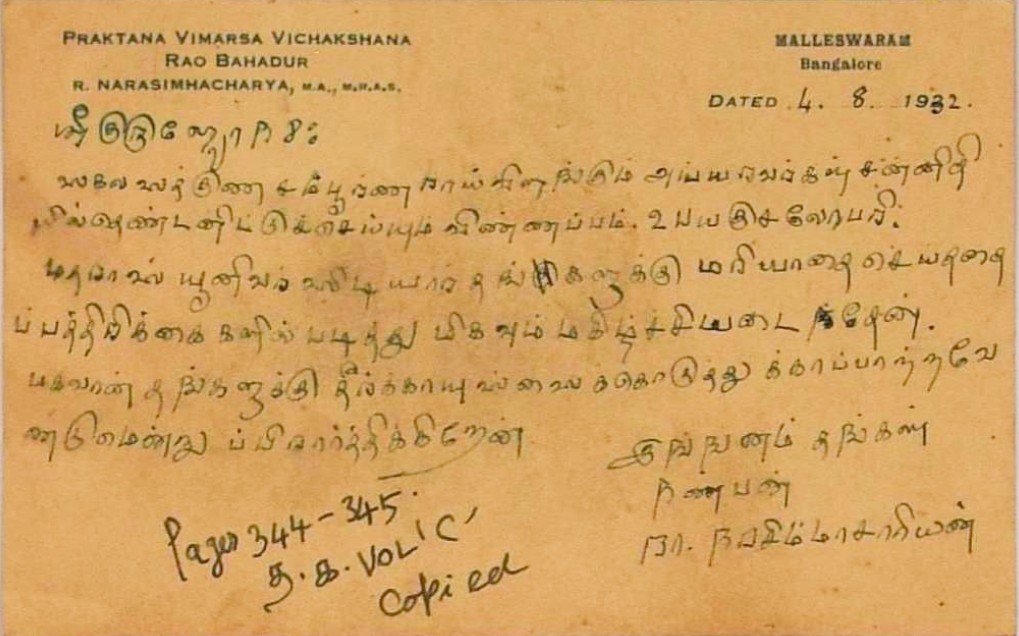 PRAKTANA VIMARSA VICHAKSHANA
RAO BAHADUR
R. NARASIMHACHARYA, M.A., M.R.A.S.
MALLESWARAM
Bangalore
DATED 4. 8. 1932.
ஸ்ரீ குருப்யோ நம:
ஸகல ஸத்குண சம்பூர்ணராய் விளங்கும் அய்யரவர்கள் சன்னிதி
யில் தெண்டனிட்டுச்செய்யும் விண்ணப்பம். உபயகுசலோபரி.
மதராஸ் யூனிவர்ஸிடியார் தங்களுக்கு மரியாதை செய்ததை
ப்பத்திரிக்கைகளில் படித்து மிகவும் மகிழ்ச்சியடைந்தேன்.
பகவான் தங்களுக்கு தீர்க்காயுஸ்ஸைக்கொடுத்து க்காப்பாற்றவே
ண்டுமென்று ப்பிரார்த்திக்கிறேன்.
இங்ஙனம் தங்கள்
நண்பன்
ரா. நரசிம்மாசாரியன்
Pages 344-345.
த.க. VOL 'C'
Copied